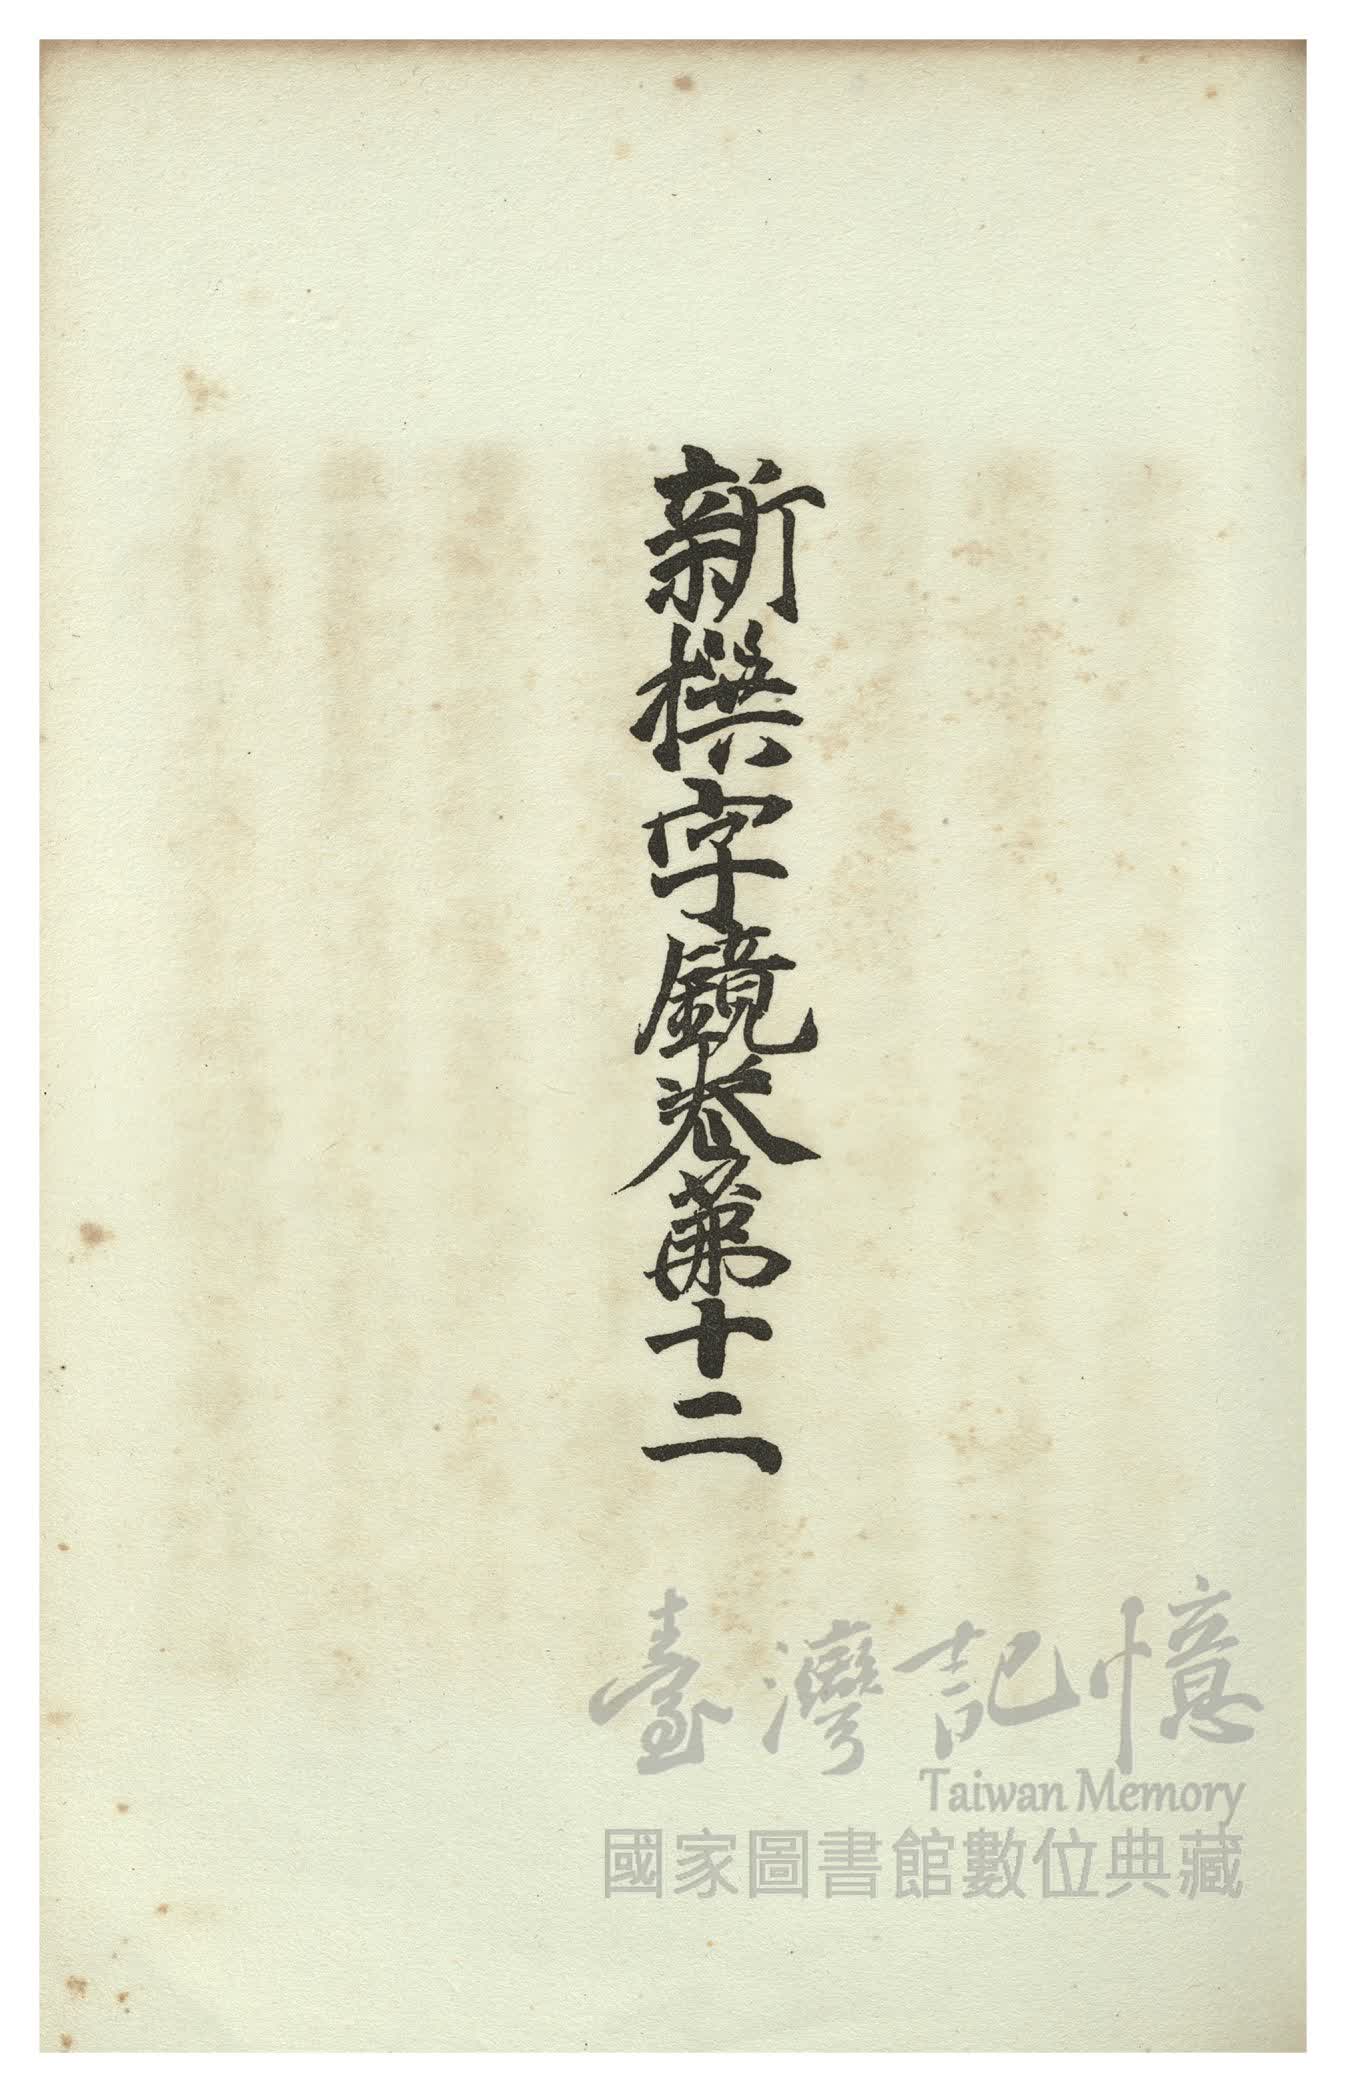 新撰字鏡卷第十二
臺灣記憶
Taiwan Memory
國家圖書館數位典藏